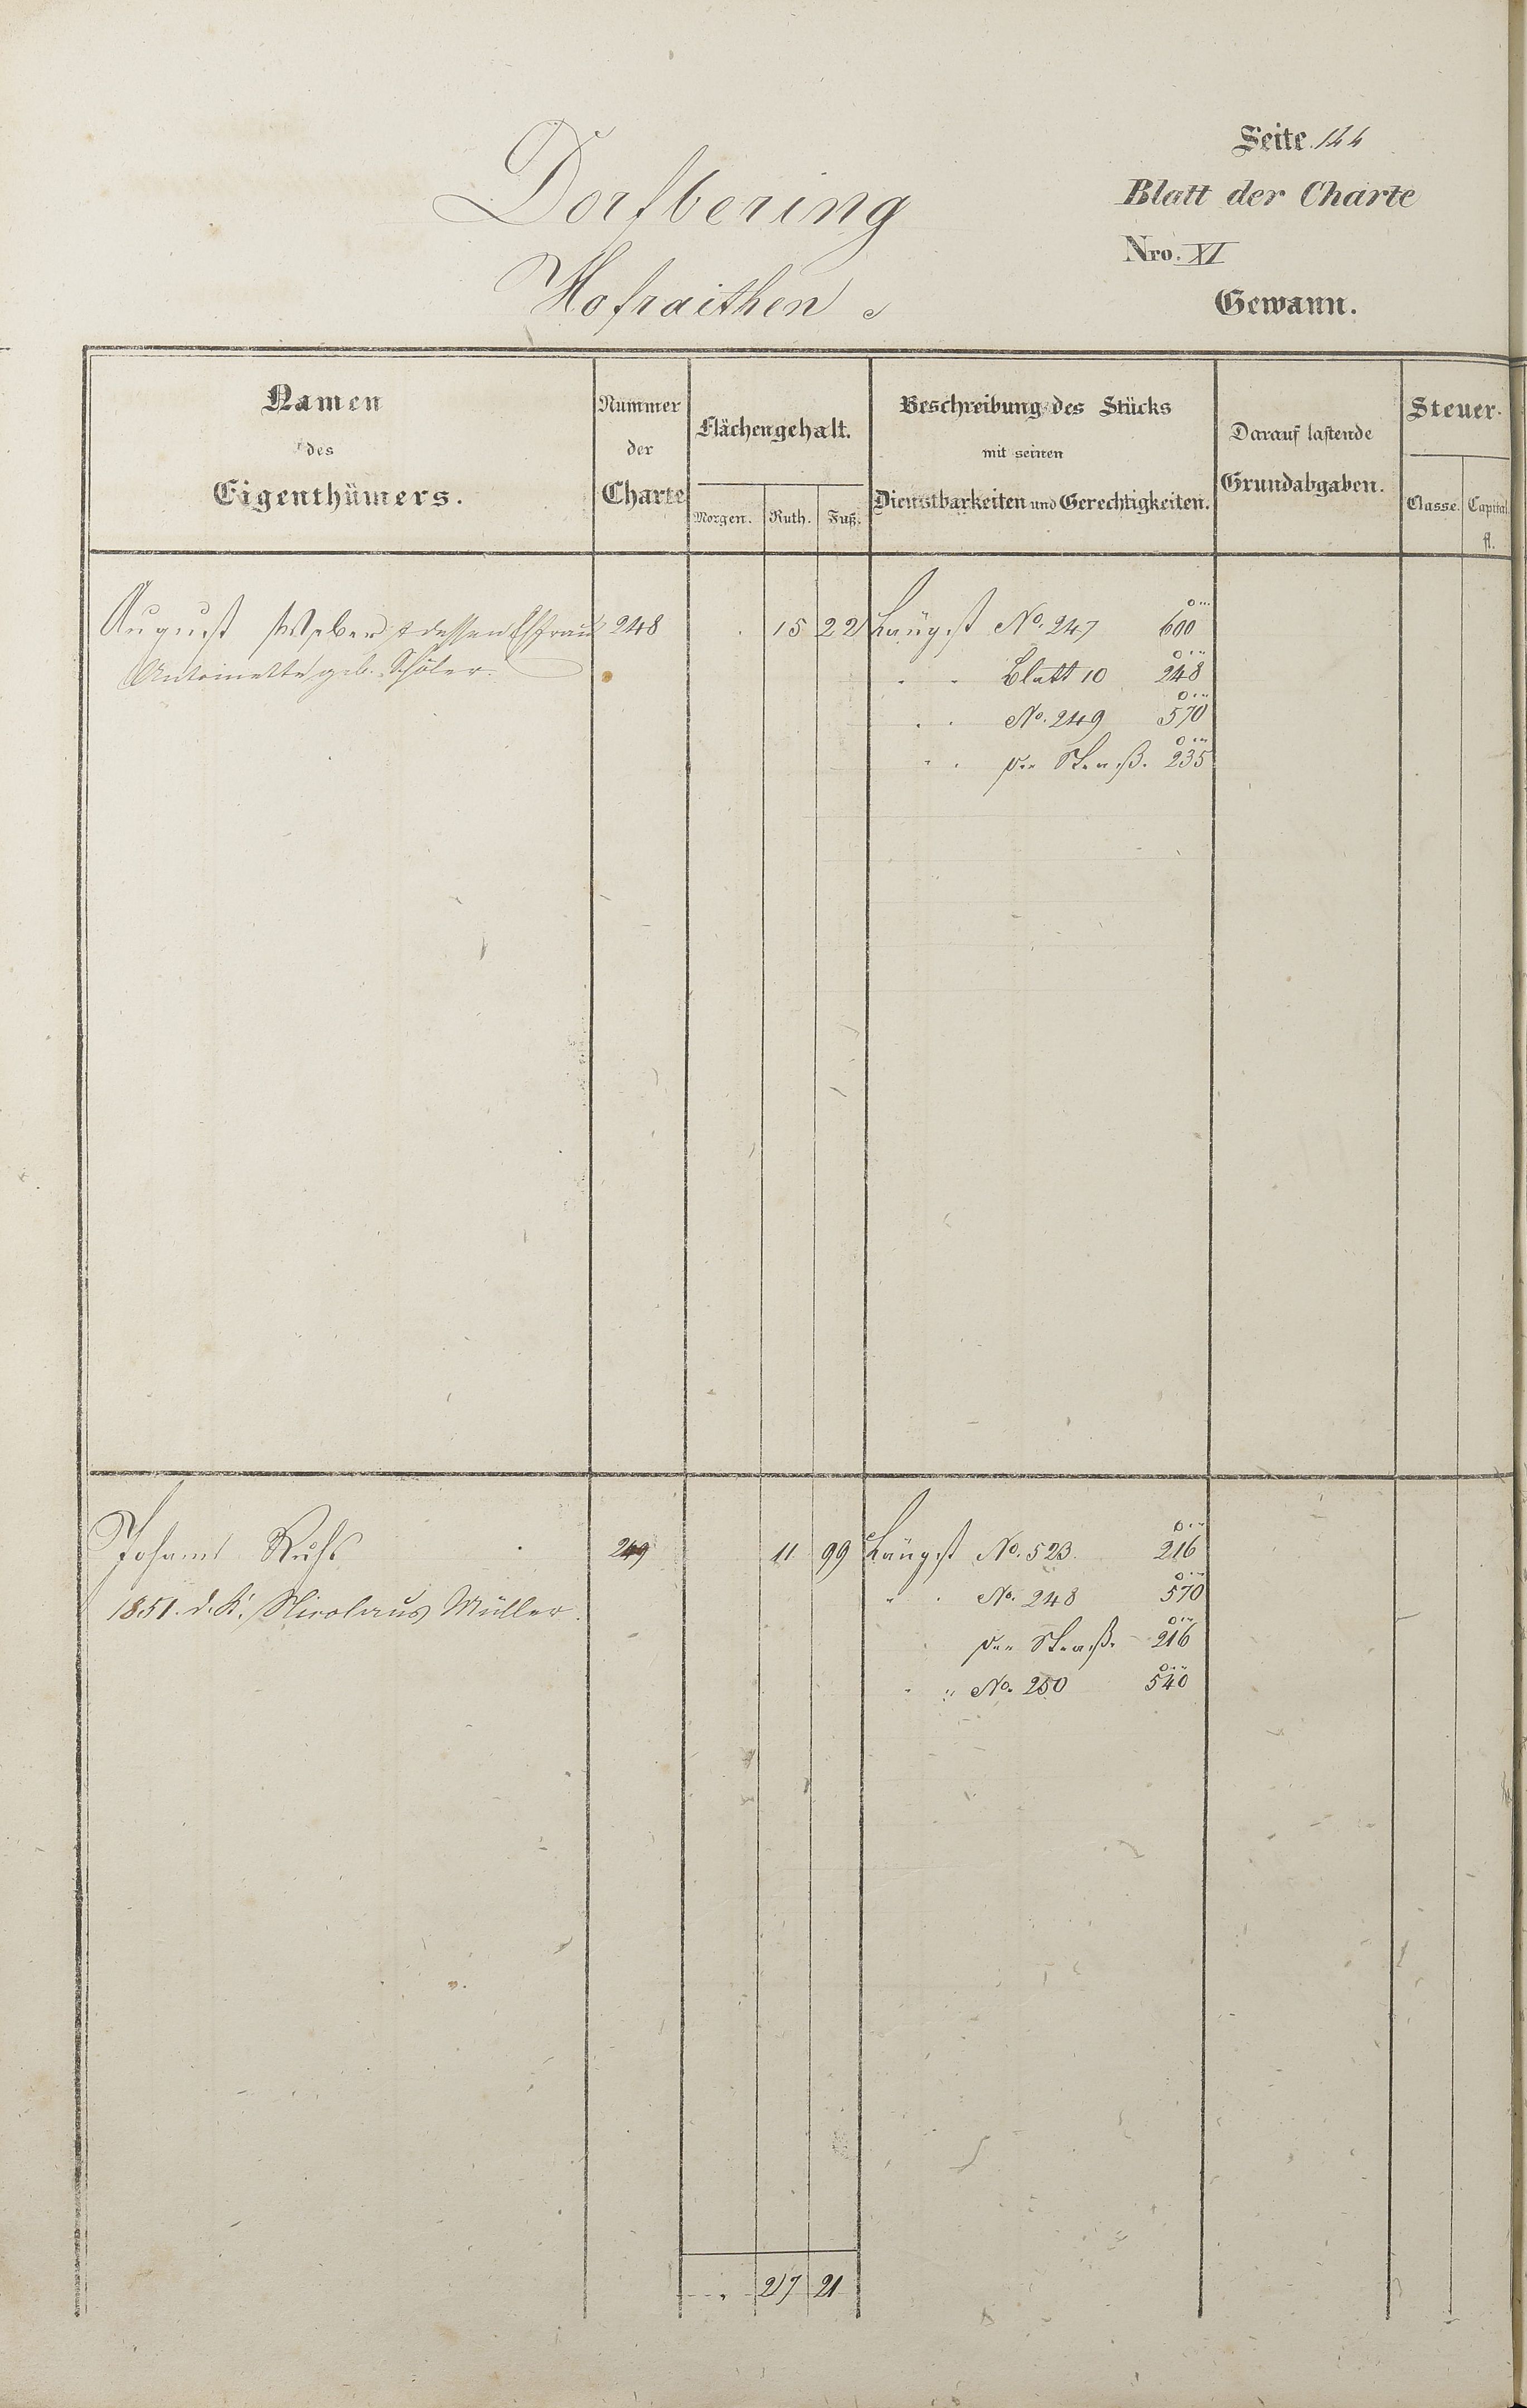 Seite 144
Dorfbering
Blatt der Charte
Nro. XI
Hofraithen
Gewann.
Namen des Eigenthümers.
Nummer der Charte
Flächengehalt.
Morgen. Ruth. Fuß.
Beschreibung des Stücks mit seinen Dienstbarkeiten und Gerechtigkeiten.
Darauf lastende Grundabgaben.
Steuer-
Classe. Capital. fl.
August Weber & dessen Ehfrau 248 15 22 Längst No. 247 600
Antoinette geb. Schöler. " " Blatt 10 248
" " No. 249 570
" " der Straß. 235
Johann Ruhl 249 11 99 Längst No. 523. 216
1851. d. K. Nicolaus Müller. " " No. 248 570
der Straß. 216
" " No. 250 540
27 21